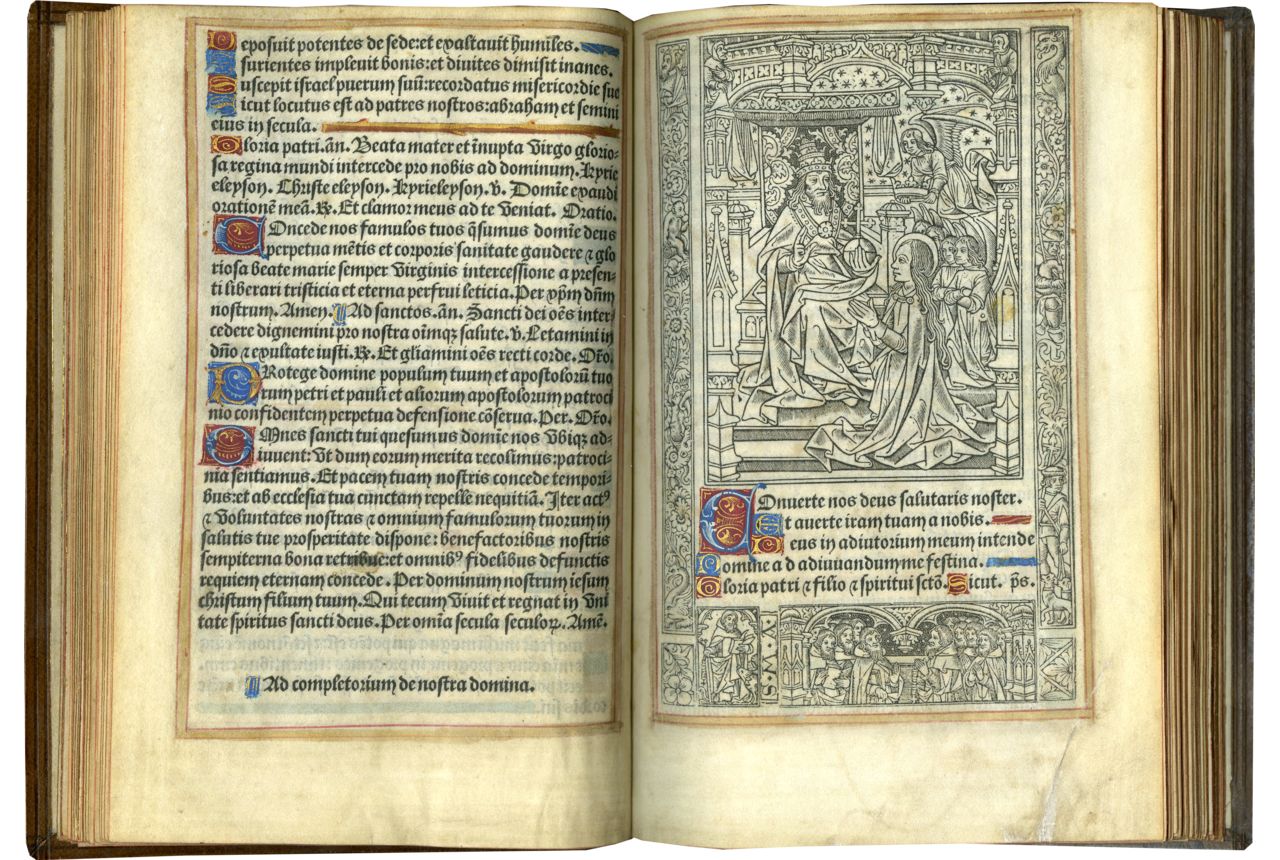 Deposuit potentes de sede:et exaltauit humiles.
Esurientes impleuit bonis:et diuites dimisit inanes.
Suscepit israel puerum suũ:recordatus misericordie sue
Sicut locutus est ad patres nostros:abraham et semini
eius in secula.
Gloria patri.añ. Beata mater et īnupta virgo glorio-
sa regina mundi intercede pro nobis ad dominum. Kyrie
eleyson. Christe eleyson. Kyrieleyson. v. Domīe exaudi
orationē meā. ℟. Et clamor meus ad te veniat. Oratio.
COncede nos famulos tuos q̄sumus domīe deus
perpetua mētis et corporis sanitate gaudere ⁊ glo
riosa beate marie semper virginis intercessione a presen-
ti liberari tristicia et eterna perfrui leticia. Per xp̄m dn̄m
nostrum. Amen. ¶ Ad sanctos. añ. Sancti dei oēs inter-
cedere dignemini pro nostra oīmqꝫ salute. v. Letamini in
dn̄o ⁊ exultate iusti. ℟. Et gl̄iamini oēs recti corde. Or̄o.
PRotege domine populum tuum et apostolorū tuo
rum petri et pauli et aliorum apostolorum patroci
nio confidentem perpetua defensione cōserua. Per. Or̄o.
OMnes sancti tui quesumus domīe nos vbiqꝫ ad-
iuuent: vt dum eorum merita recolimus:patroci-
nia sentiamus. Et pacem tuam nostris concede tempori-
bus:et ab ecclesia tua cunctam repelle nequitiā. Iter actꝰ
⁊ voluntates nostras ⁊ omnium famulorum tuorum in
salutis tue prosperitate dispone: benefactoribus nostris
sempiterna bona retribue:et omnibꝰ fidelibus defunctis
requiem eternam concede. Per dominum nostrum iesum
christum filium tuum. Qui tecum viuit et regnat in vni
tate spiritus sancti deus. Per omīa secula seculoꝝ. Amē.
¶ Ad completorium de nostra domina.
COnuerte nos deus salutaris noster.
Et auerte iram tuam a nobis.
Deus in adiutorium meum intende
Domine a d adiuuandum me festina.
Gloria patri ⁊ filio ⁊ spiritui sctō. Sicut. p̄s.
S. M. A.